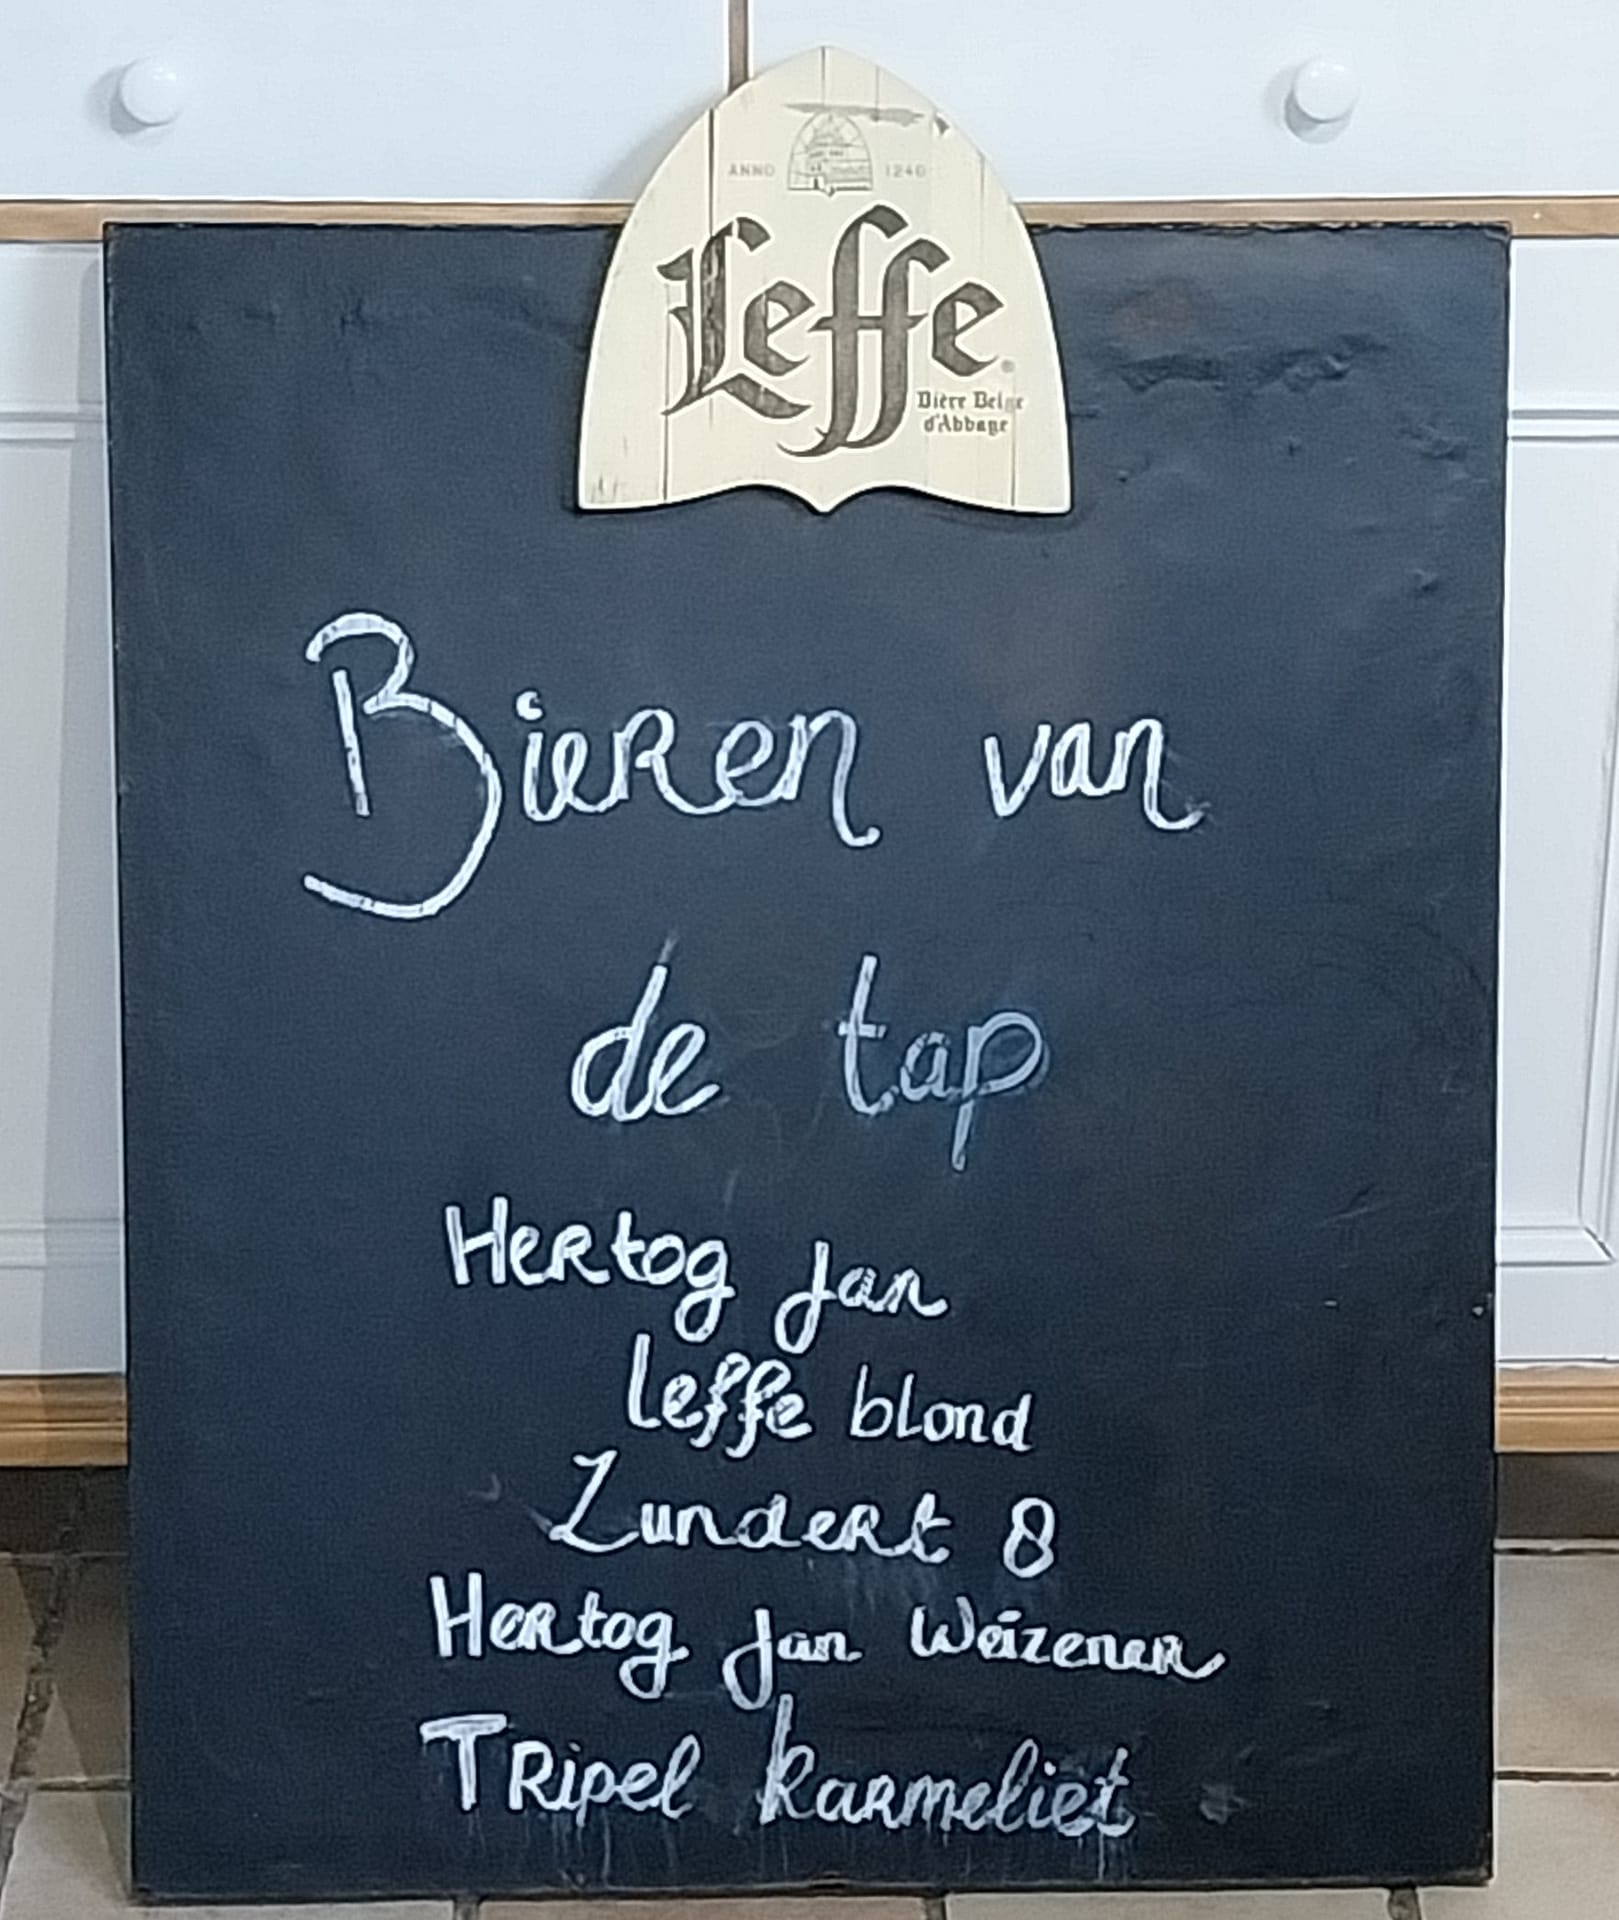 ANNO 1240
Leffe®
Bière Belge
d'Abbaye
Bieren van
de tap
Hertog Jan
leffe blond
Zundert 8
Hertog Jan Weizener
Tripel karmeliet